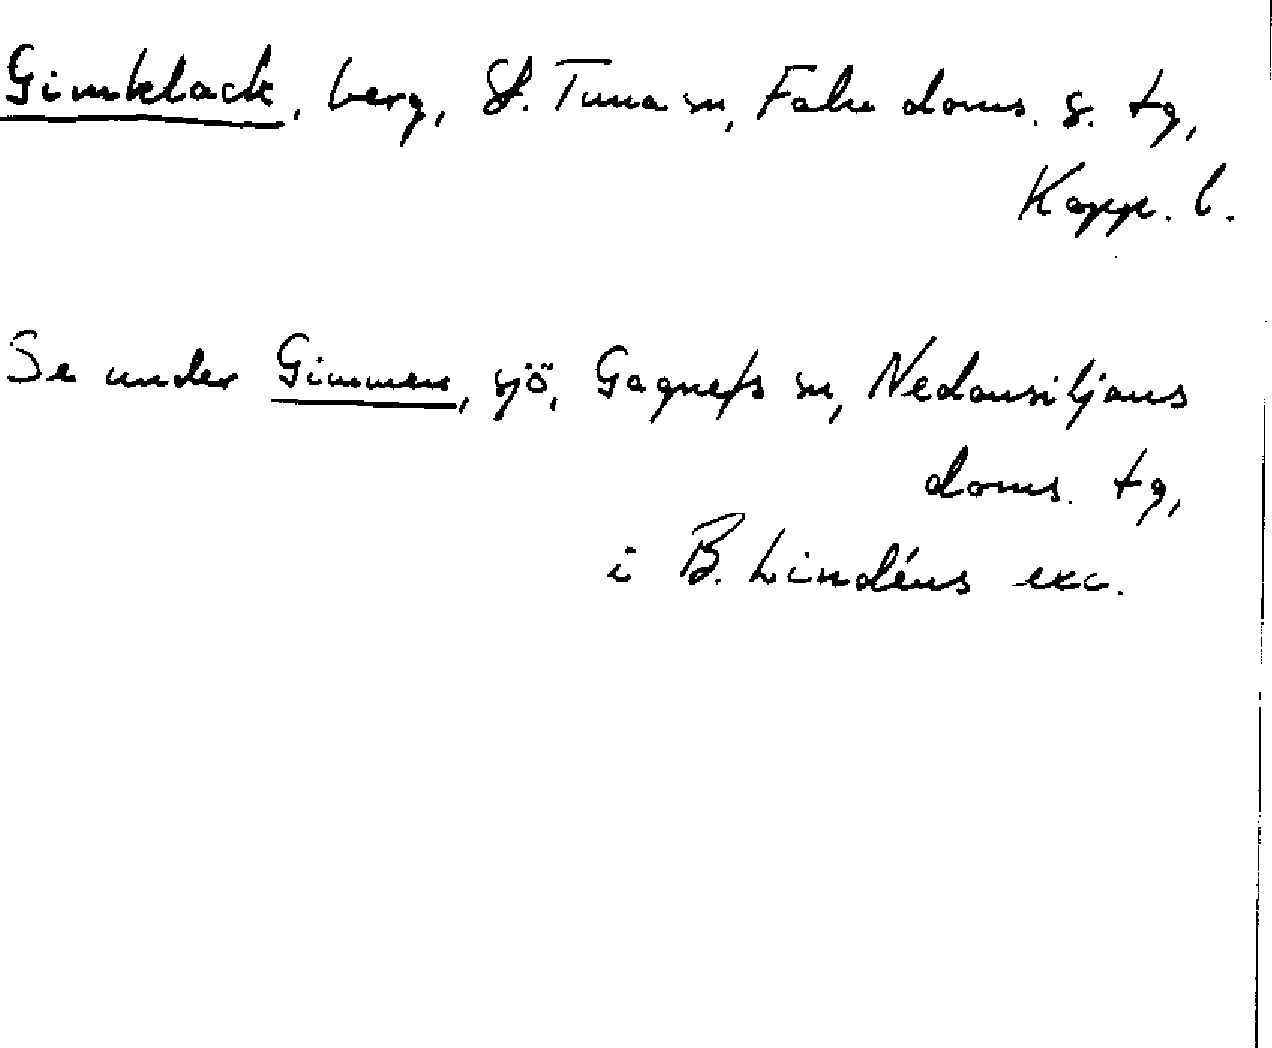 Gimklack, berg, St. Tuna sn, Falu doms. s. tg,
Kopp. l.
Se under Gimmen, sjö, Gagnefs sn, Nedansiljans
doms. tg,
i B. Lindéns exc.